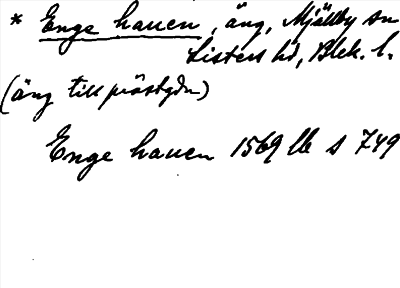 * Enge hauen, äng, Mjällby sn
Listers hd, Blek. l.
(äng till prästgdn)
Enge hauen 1569 lb s 749